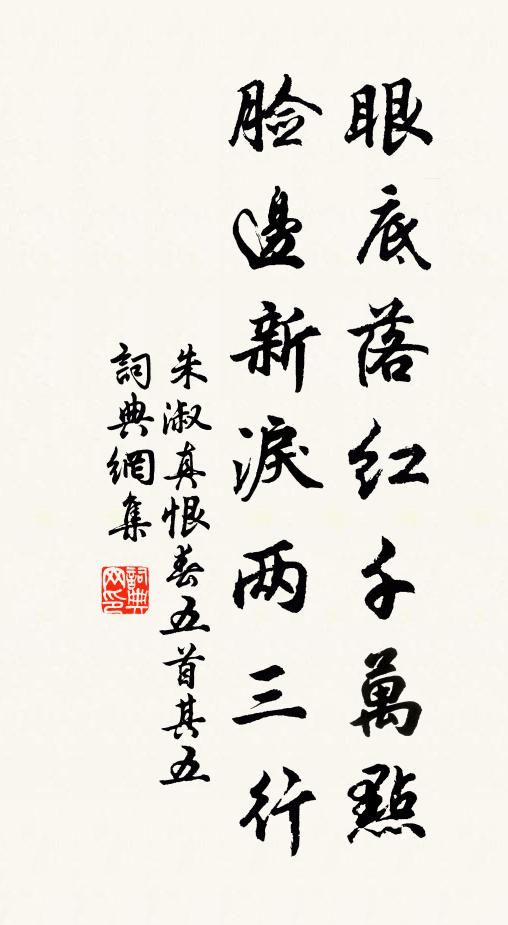 眼底落红千萬點
臉邊新淚两三行
朱淑真恨春五首其五
詞典網集
詞典网印